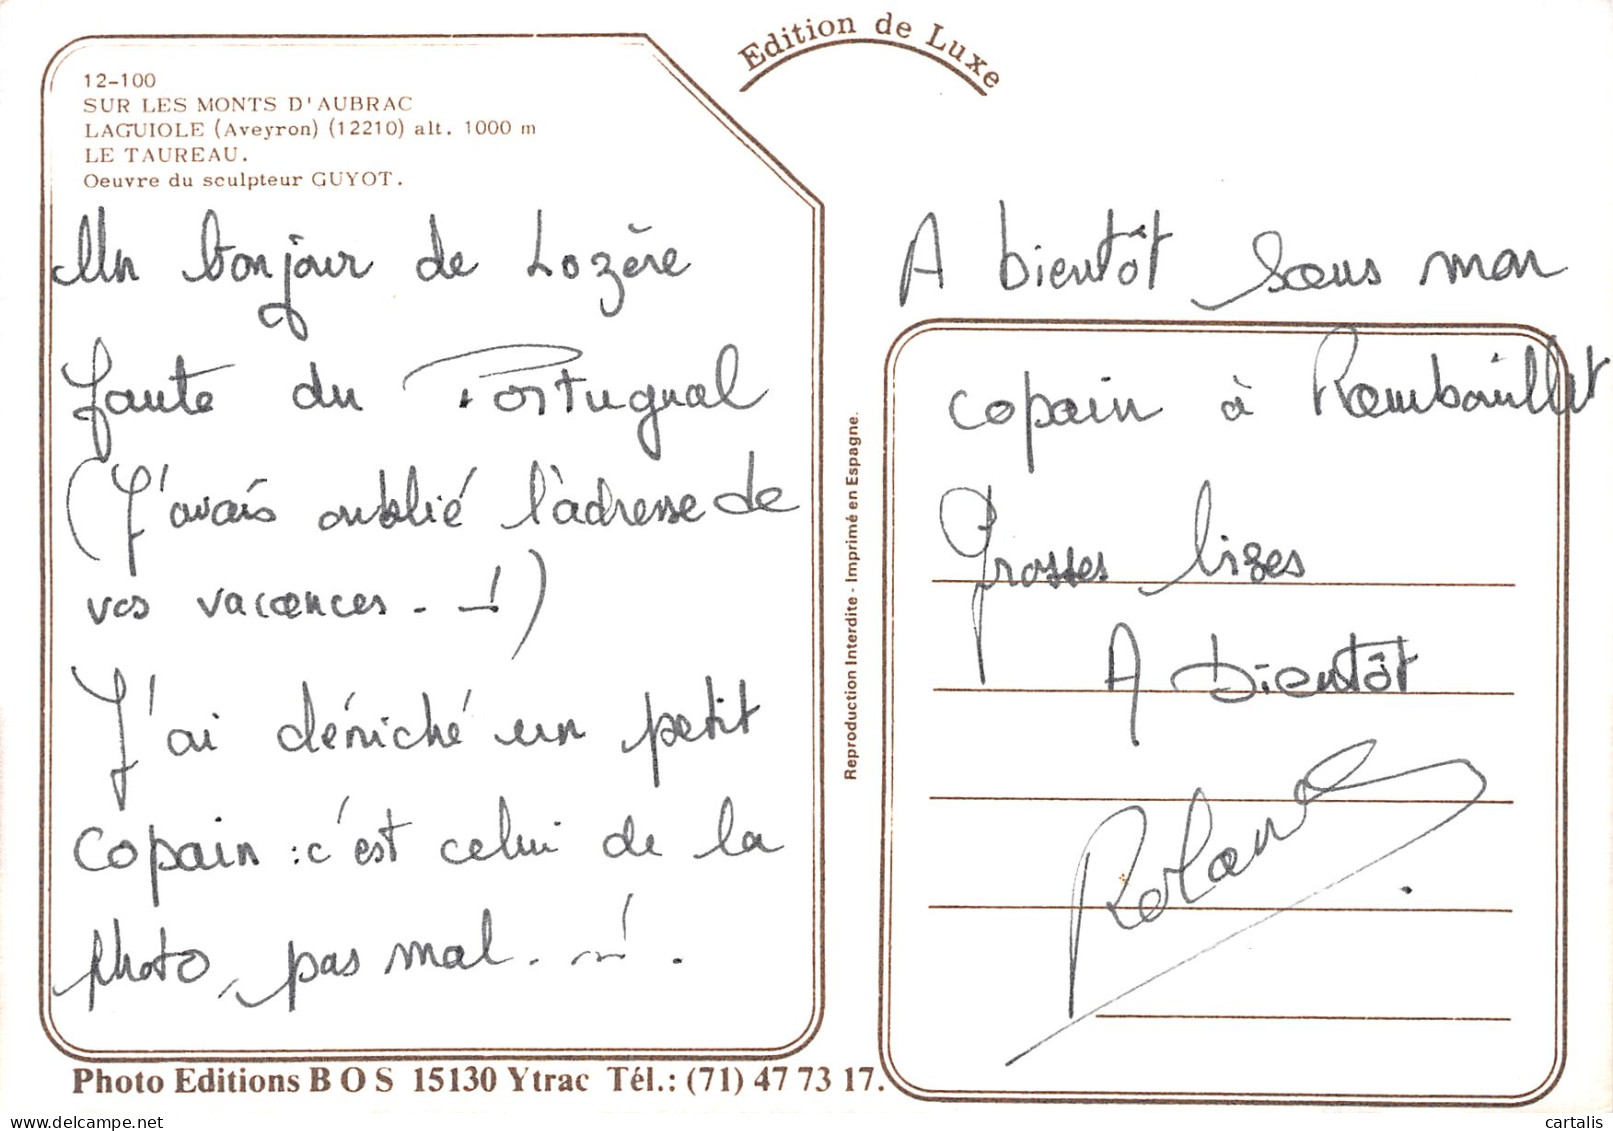 Edition de Luxe
12-100
SUR LES MONTS D'AUBRAC
LAGUIOLE (Aveyron) (12210) alt. 1000 m
LE TAUREAU.
Oeuvre du sculpteur GUYOT.
Un bonjour de Lozère
faute du Portugual
(J'avais oublié l'adresse de
vos vacances. _!)
J'ai déniché un petit
copain : c'est celui de la
photo, pas mal. _! .
Reproduction Interdite - Imprimé en Espagne.
A bientôt sans mon
copain à Rambouillet
Grosses bizes
A bientôt
Roland
Photo Editions B O S 15130 Ytrac Tél.: (71) 47 73 17.
delcampe.net
cartalis